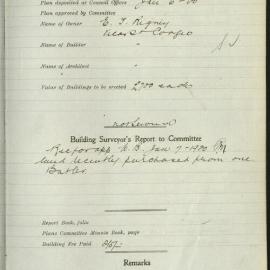 Plan deposited at Council Offices Jan 6-00
Plan approved by Committee
Name of Owner E. J. Rigney
Name of Builder
"
Name of Architect
"
Value of Buildings to be erected £700 each
Building Surveyor's Report to Committee
Rec for app E.B. Jan 7-1900
land recently purchased from one
Butler.
Report Book, folio
Plans Committee Minute Book, page
Building Fee Paid
Remarks